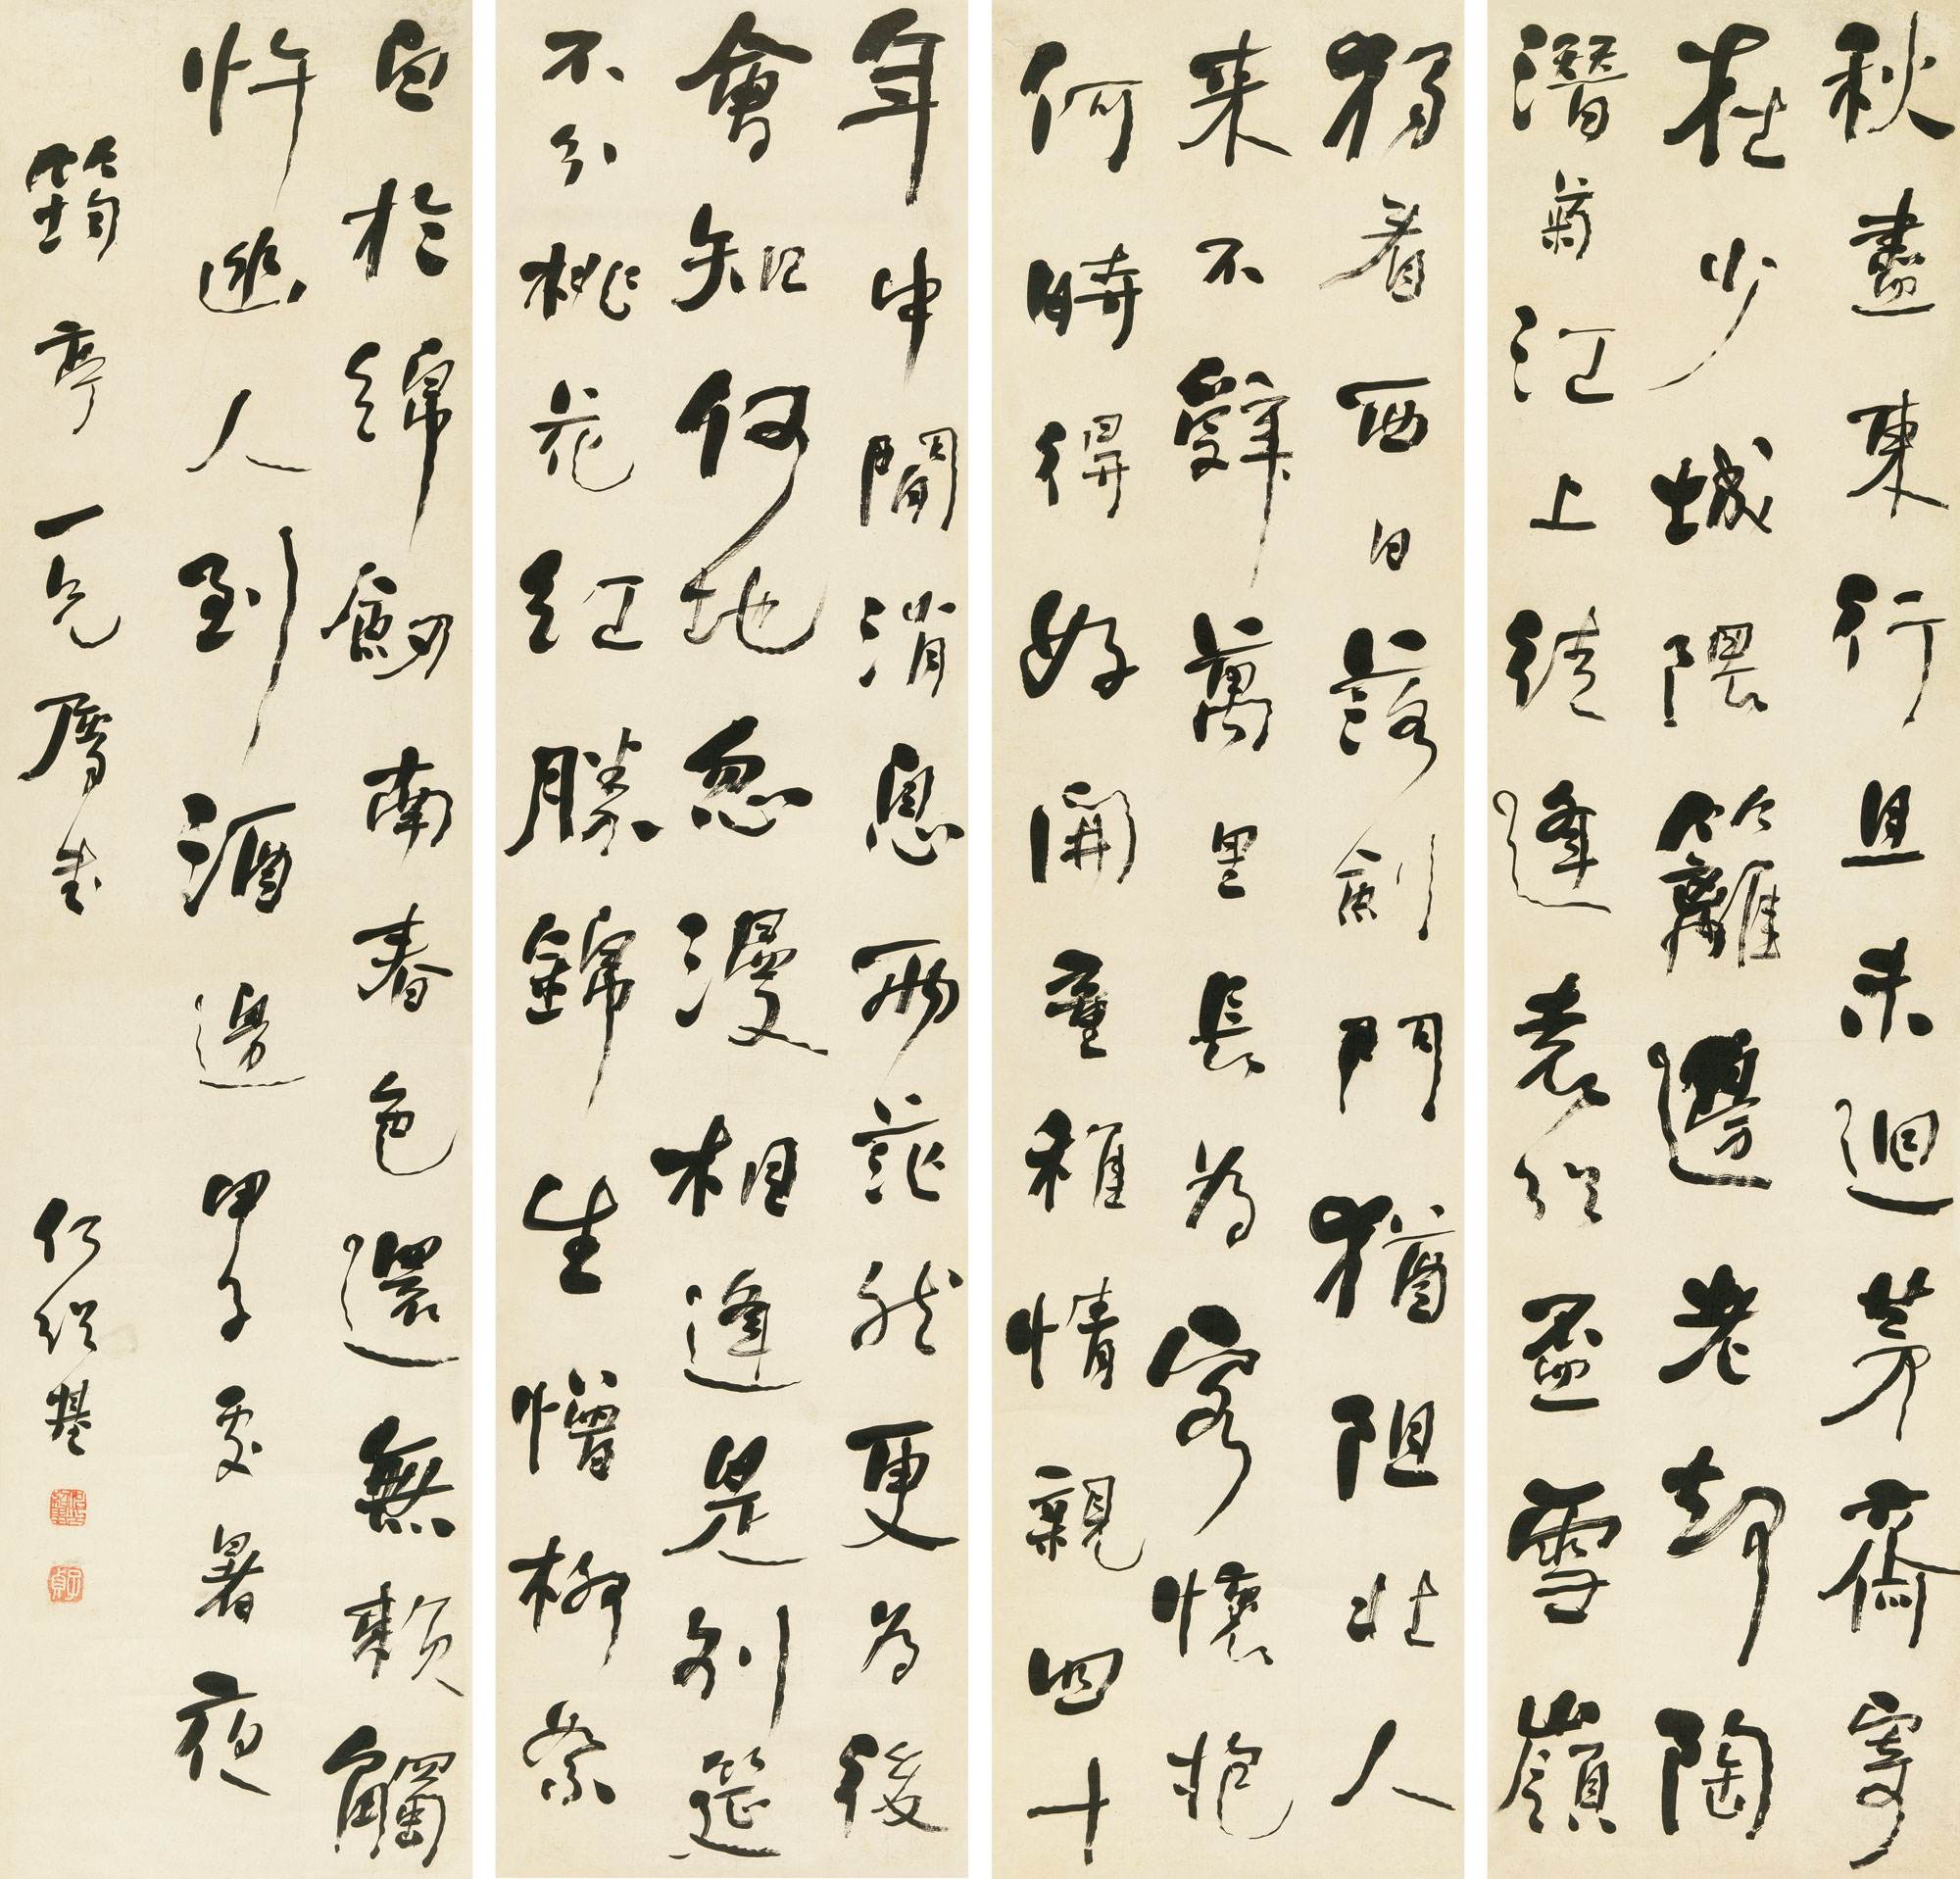 秋盡東行且未迴茅齋寄
在少城隈籬邊老却陶
潛菊江上徒逢袁紹盃雪嶺
獨看西日落劍門猶阻北人
来不辭萬里長為客懷抱
何時得好開童稚情親四十
年中間消息兩茫然更為後
會知何地忽漫相逢是別筵
不分桃花紅勝錦生憎柳絮
白於綿劒南春色還無賴觸
忤人到酒邊 甲子處暑夜
筠亭一兄屬書 何紹基
子貞